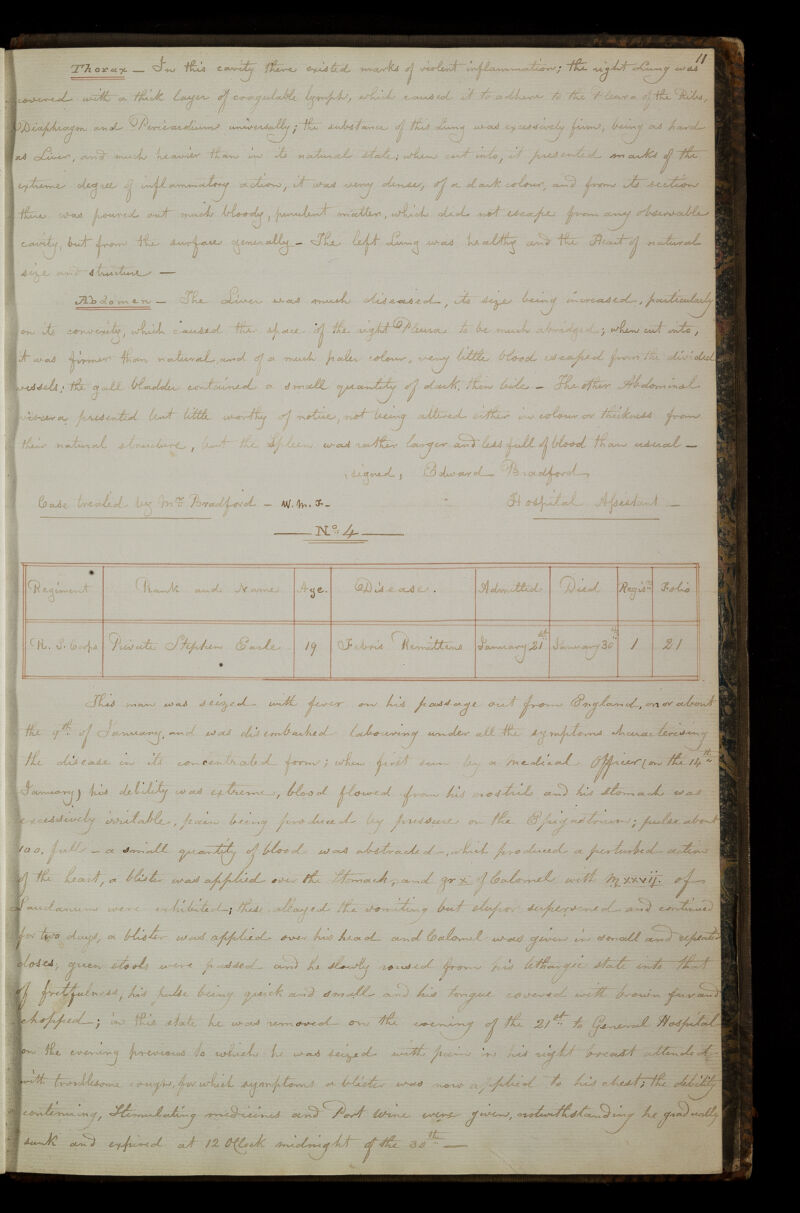 11
Thorax — In this cavity there existed marks of violent inflammation; the right Lung was
covered with a thick layer of coagulable lymph, which caused it to adhere to the Pleura of the Ribs,
Diaphragm and Pericardium universally; the substance of this Lung was excessively firm, being as hard
as Liver, and much heavier than in its natural state; when cut into, it presented marks of the
extreme degree of inflammatory action, it was very dense, of a dark colour, and from its section
there was poured out much bloody, purulent matter, which did not escape from any observable
cavity, but from the surface generally – The left Lung was healthy and the Heart of natural
size and structure —
Abdomen – The Liver was much diseased, its size being increased, particularly
on its convexity, which caused the space of the right Pleura to be much abridged; when cut into,
it was firmer than natural and of a much paler colour, very little blood escaped from the divided
vessels; the gall bladder contained a small quantity of dark, thin bile – The other Abdominal
viscera presented but little worthy of notice, not being altered either in colour or thickness from
their natural structure, but the Spleen was rather larger and less full of blood than usual –
signed, Edward Bradford,
Case treated by Mr. Bradford – W. M. F. – Hospital Assistant –
No. 4
Regiment Rank and Name Age. Disease. Admitted Died Regisr. Folio
R. S. Corps Private Stephen Earle 19 Febris Remittens January 21st January 30th 1 21
This man was seized with fever on his passage out from England, on or about
the 9th of January, and was disembarked labouring under all the symptoms characterising
the disease in its concentrated form; when first seen by a medical Officer (on the 14th
January) his debility was extreme, blood flowed from his nostrils and his stomach was
excessively irritable, pain being produced by pressure on the Epigastrium; pulse about
100, full – a small quantity of blood was abstracted, which produced a perturbed action
of the heart, a blister was applied over the Stomach, and gr x of Calomel with of
Laudanum were exhibited; these allayed the vomiting but stupor supervened and continued
for two days, a blister was applied over his head and Calomel was given in small and repeated
doses, green stools were passed and he slowly roused from his lethargic state into that
of fretfulness, his pulse being quick and small and his tongue covered with brown fur and
chopped; in this state he was removed on the evening of the 21st to General Hospital
on the evening previous to which he was seized with pain in his right breast attended
with troublesome cough, for which symptoms a blister was now applied to his chest; the debility
continuing, Stimulating medicines and Port wine were given, notwithstanding he gradually
sunk and expired at 12 OClock midnight of the 30th —